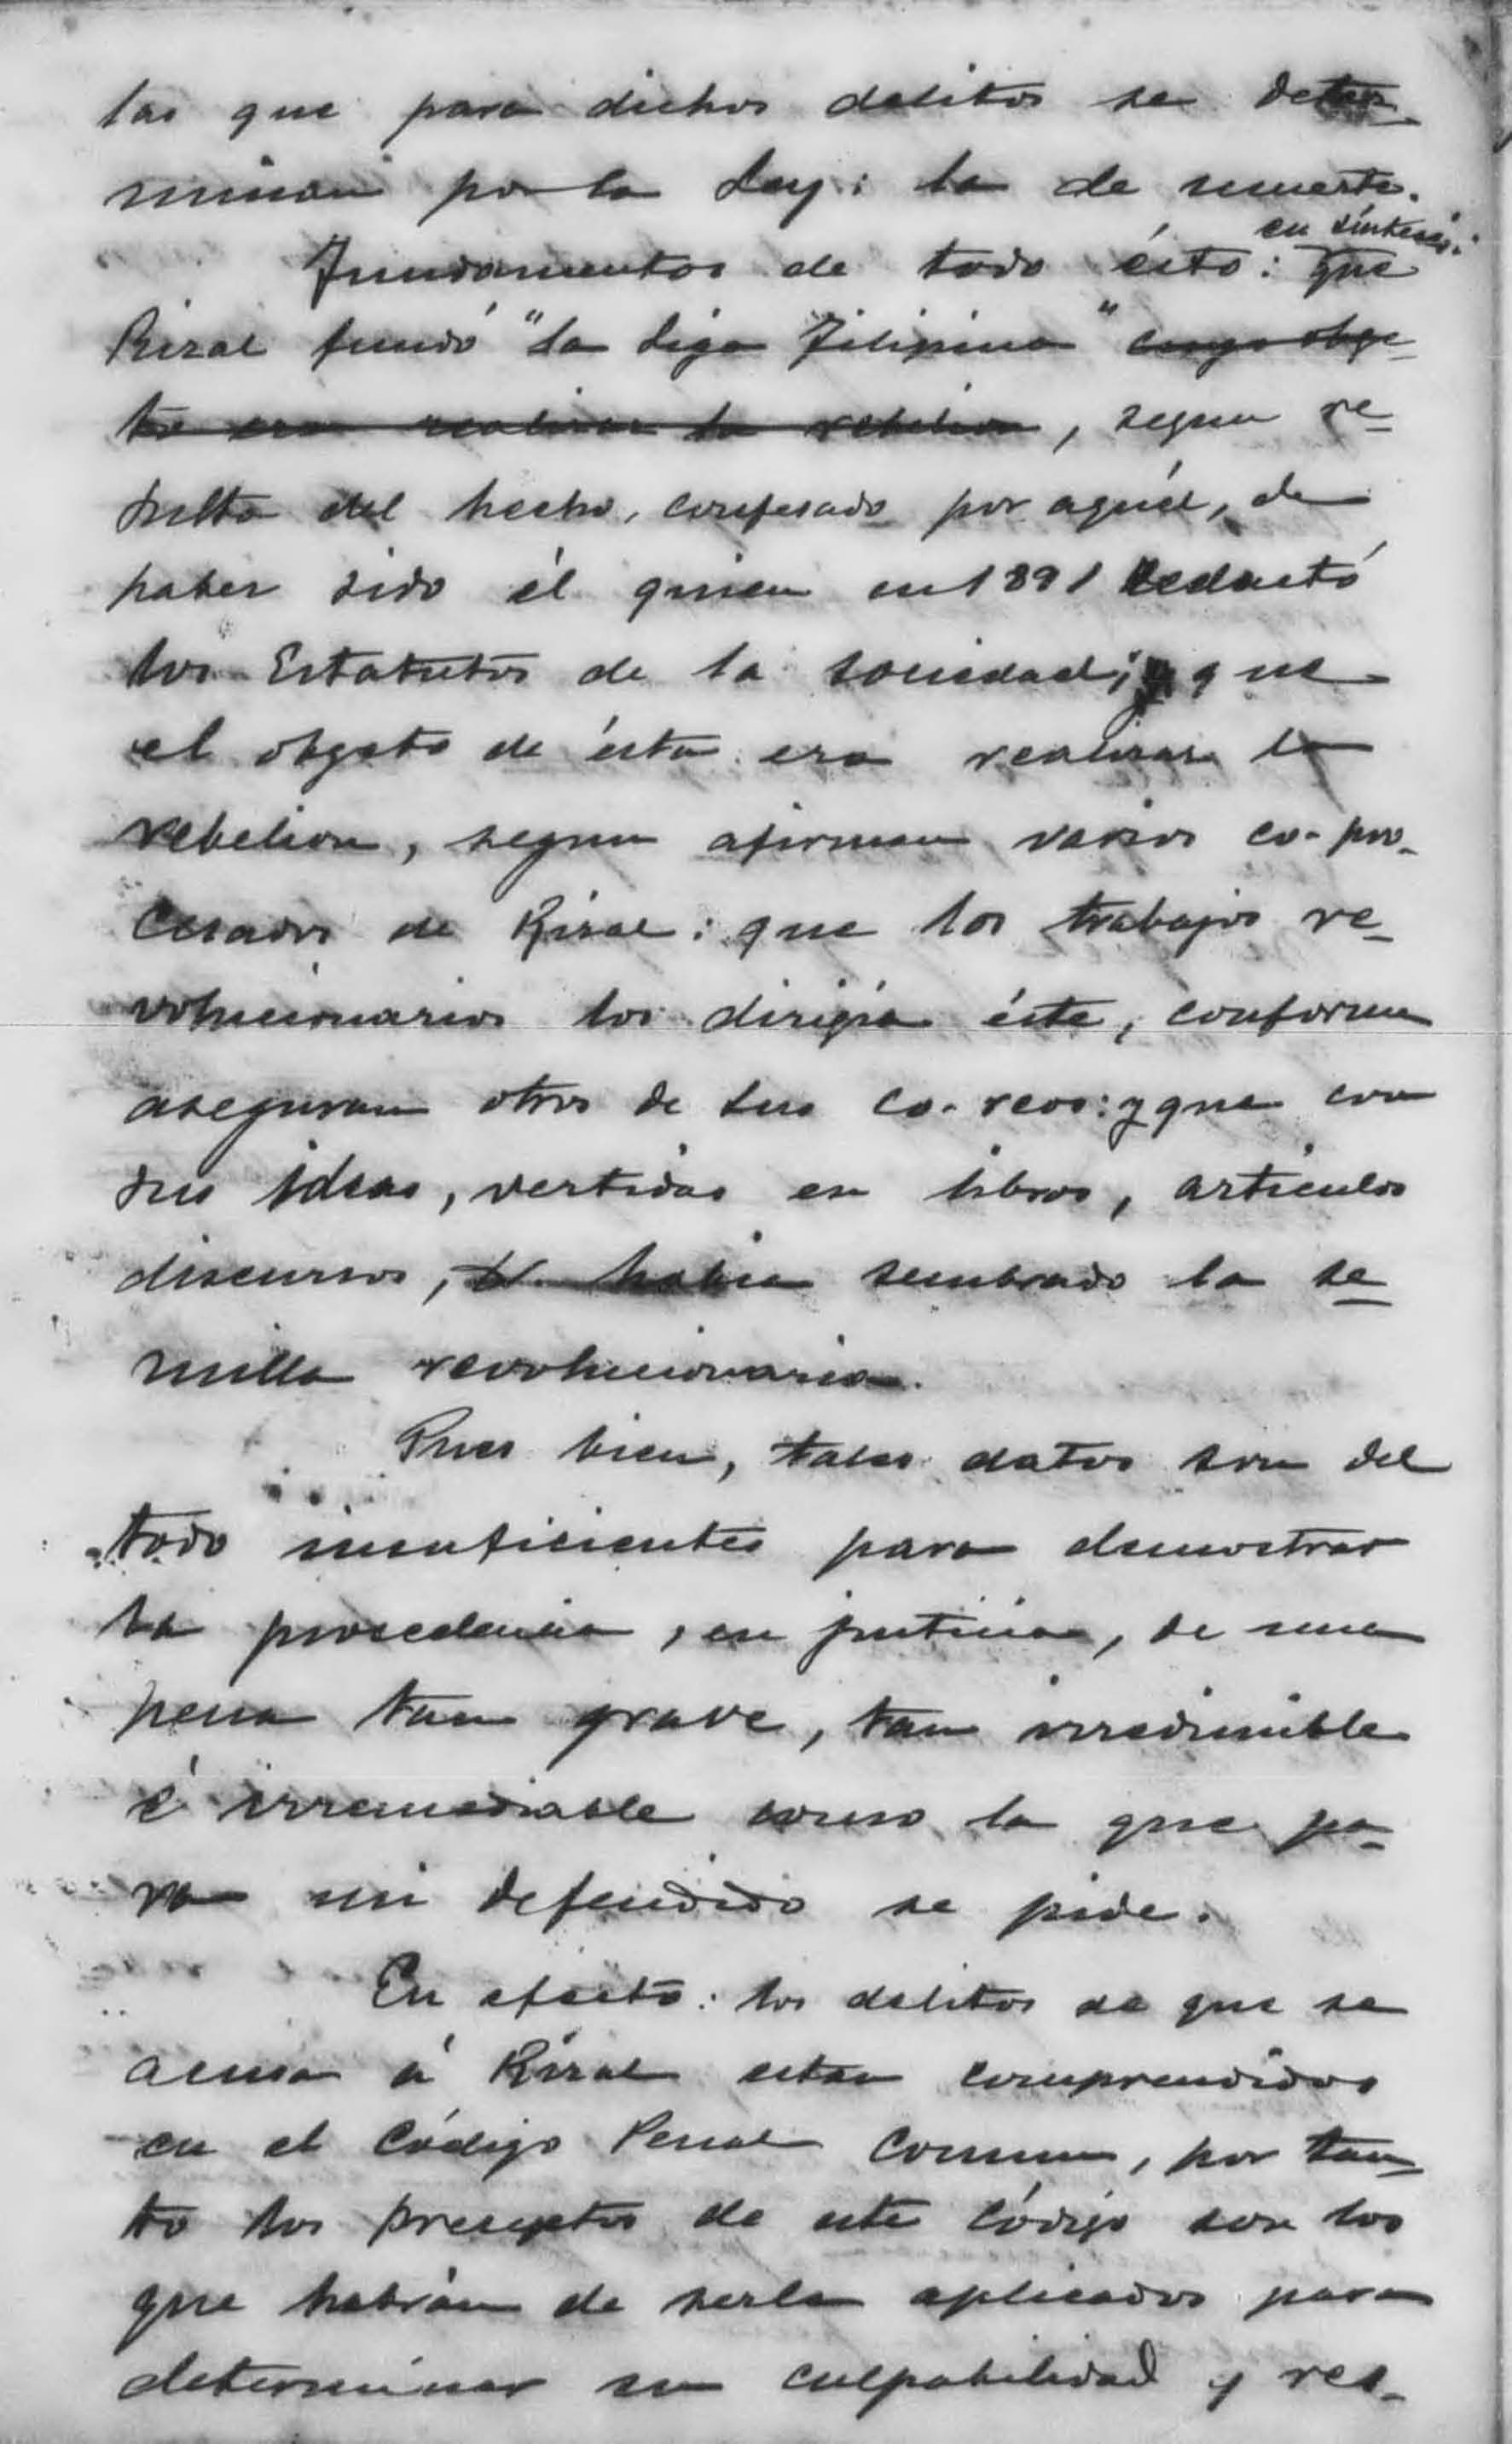 las que para dichos delitos se deter-
minan por la Ley: la de muerte.
en síntesis:
Fundamentos de todo ésto: que
Rizal fundó "La Liga Filipina" cuyo obge-
to era realizar la rebelion, segun re-
sulta del hecho, confesado por aquél, de
haber sido él quien en 1891 redactó
los Estatutos de la sociedad; que
el obgeto de ésta era realizar la
rebelion, segun afirman varios co-pro-
cesados de Rizal: que los trabajos re-
volucionarios los dirigía éste, conforme
aseguran otros de sus co-reos: y que con
sus ideas, vertidas en libros, articulos
discursos, habia sembrado la se-
milla revolucionaria.
Pues bien, tales datos son del
todo insuficientes para demostrar
la procedencia, en justicia, de una
pena tan grave, tan irredimible
é irremediable como la que pa-
ra mi defendido se pide.
En efecto: los delitos de que se
acusa á Rizal estan comprendidos
en el Código Penal comun, por tan-
to los preceptos de este Código son los
que habrán de serle aplicados para
determinar su culpabilidad y res-